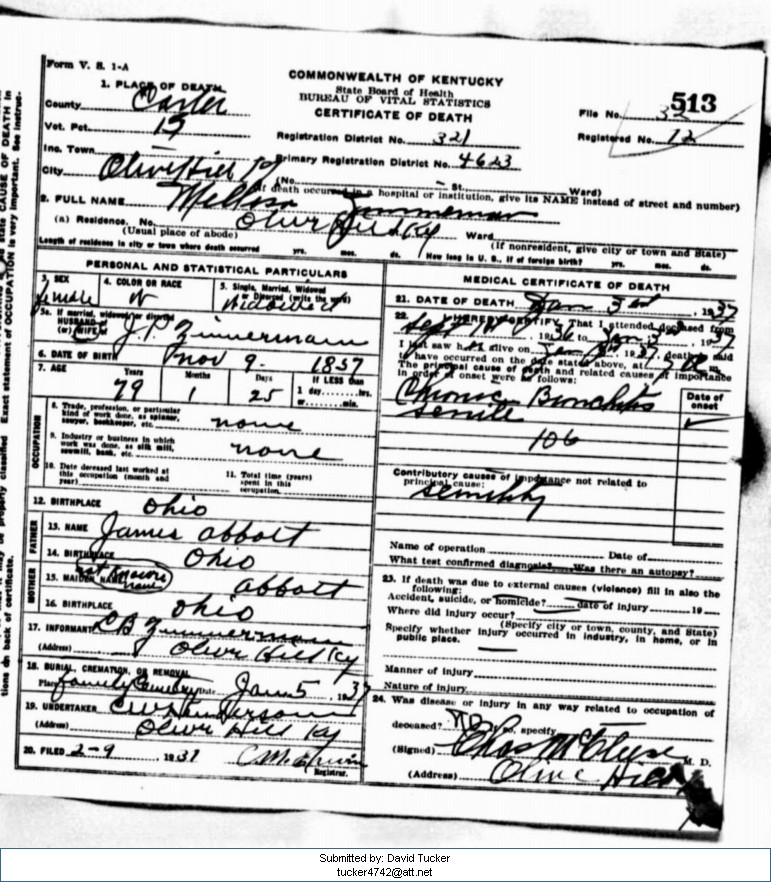 Form V. S. 1-A
COMMONWEALTH OF KENTUCKY
State Board of Health
BUREAU OF VITAL STATISTICS
CERTIFICATE OF DEATH
513
1. PLACE OF DEATH
County Carter
Vot. Pct. 15
Inc. Town
City Olive Hill Ky
File No. 32
Registration District No. 321
Registered No. 12
Primary Registration District No. 4623
(No. St. Ward)
(If death occurred in a hospital or institution, give its NAME instead of street and number)
2. FULL NAME Melissa Zimmerman
(a) Residence. No. Olive Hill Ky Ward
(Usual place of abode) (If nonresident, give city or town and State)
Length of residence in city or town where death occurred yrs. mos. ds. How long in U. S., if of foreign birth? yrs. mos. ds.
PERSONAL AND STATISTICAL PARTICULARS
3. SEX female
4. COLOR OR RACE W
5. Single, Married, Widowed or Divorced (write the word) Widowed
5a. If married, widowed or divorced
HUSBAND of (or) WIFE of J. P. Zimmerman
6. DATE OF BIRTH Nov 9 1857
7. AGE Years 79 Months 1 Days 25 If LESS than 1 day hrs. or min.
OCCUPATION
8. Trade, profession, or particular kind of work done, as spinner, sawyer, bookkeeper, etc. none
9. Industry or business in which work was done, as silk mill, sawmill, bank, etc. none
10. Date deceased last worked at this occupation (month and year)
11. Total time (years) spent in this occupation
12. BIRTHPLACE Ohio
FATHER
13. NAME James Abbott
14. BIRTHPLACE Ohio
MOTHER
15. MAIDEN NAME not known name abbott
16. BIRTHPLACE Ohio
17. INFORMANT Zimmerman
(Address) Olive Hill Ky
18. BURIAL, CREMATION, OR REMOVAL
Place family Cemetery Date Jan 5, 1937
19. UNDERTAKER Henderson
(Address) Olive Hill Ky
20. FILED 2-9 1937
Registrar.
MEDICAL CERTIFICATE OF DEATH
21. DATE OF DEATH Jan 3rd, 1937
22. I HEREBY CERTIFY, That I attended deceased from
Sept 1st 1936 to Jan 3rd, 1937
I last saw h alive on Jan 1937, death is said
to have occurred on the date stated above, at m.
The principal cause of death and related causes of importance
in order of onset were as follows:
Date of onset
Chronic Bronchitis
senile
106
Contributory causes of importance not related to
principal cause:
senility
Name of operation Date of
What test confirmed diagnosis? Was there an autopsy?
23. If death was due to external causes (violence) fill in also the
following:
Accident, suicide, or homicide? date of injury 19
Where did injury occur?
(Specify city or town, county, and State)
Specify whether injury occurred in industry, in home, or in
public place.
Manner of injury
Nature of injury
24. Was disease or injury in any way related to occupation of
deceased? No If so, specify
(Signed) Chas M. D.
(Address) Olive Hill
Submitted by: David Tucker
tucker4742@att.net